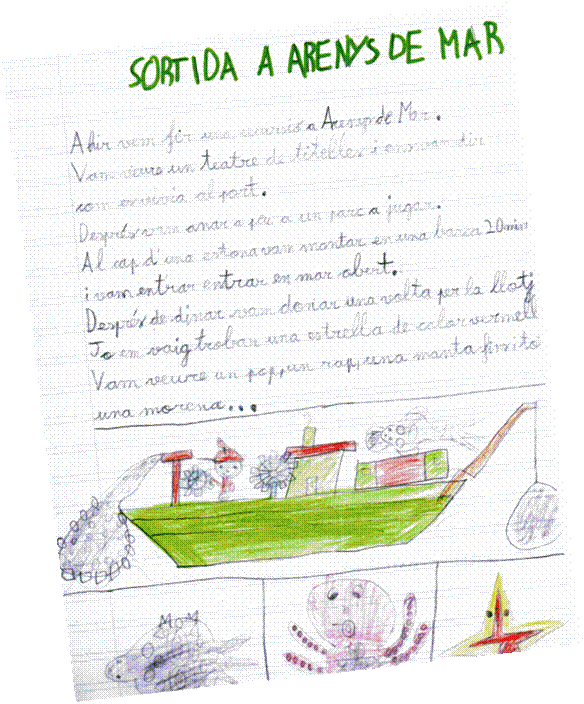 SORTIDA A ARENYS DE MAR
Ahir vam fer una excursió a Arenys de Mar.
Vam veure un teatre de titelles i ens van dir
com es vivia al port.
Després vam anar a peu a un parc a jugar.
Al cap d'una estona vam montar en una barca 20 min
i vam entrar entrar en mar obert.
Després de dinar vam donar una volta per la llotj
Jo em vaig trobar una estrella de color vermell
Vam veure un pop, un rap, una manta fins i to
una morena...